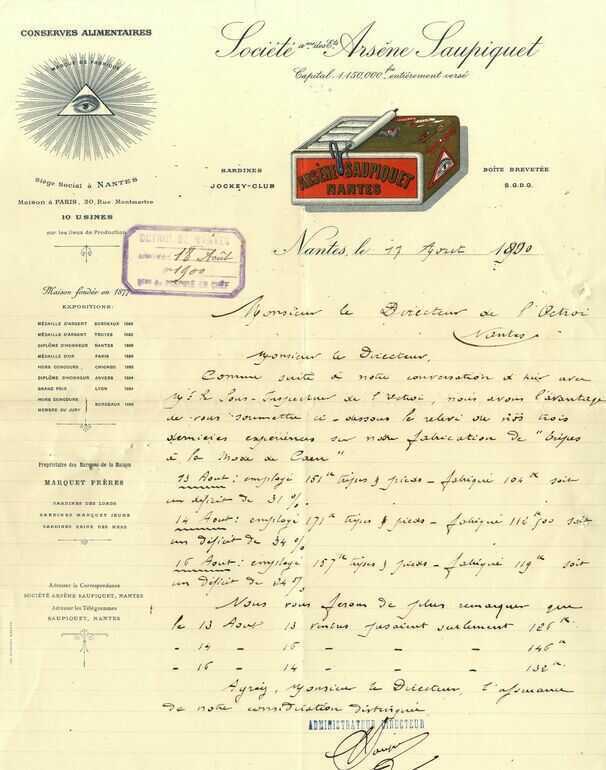 CONSERVES ALIMENTAIRES
MARQUE DE FABRIQUE
Siège Social à NANTES
Maison à PARIS, 30, Rue Montmartre
10 USINES
sur les lieux de Production
Société ame des Ets Arsène Saupiquet
Capital: 1.150.000 fcs entièrement versé
SARDINES
JOCKEY-CLUB
ARSÈNE SAUPIQUET
NANTES
BOÎTE BREVETÉE
S.G.D.G.
OCTROI DE NANTES
18 Août
1900
Nantes, le 17 Août 1890
Maison fondée en 1877
EXPOSITIONS:
MÉDAILLE D'ARGENT BORDEAUX
MÉDAILLE D'ARGENT TROYES
DIPLÔME D'HONNEUR NANTES
MÉDAILLE D'OR PARIS
HORS CONCOURS CHICAGO
DIPLÔME D'HONNEUR ANVERS
GRAND PRIX LYON
HORS CONCOURS
MEMBRE DU JURY
BORDEAUX
Propriétaire des Marques de la Maison
MARQUET FRÈRES
SARDINES DES LORDS
SARDINES MARQUET JEUNE
SARDINES REINE DES MERS
Adresser la Correspondance
SOCIÉTÉ ARSÈNE SAUPIQUET, NANTES
Adresser les Télégrammes
SAUPIQUET, NANTES
Monsieur le Directeur de l'Octroi
Nantes
Monsieur le Directeur,
Comme suite à notre conversation d'hier avec
Mr le Sous-Inspecteur de l'Octroi, nous avons l'avantage
de vous soumettre ci-dessous le relevé de nos trois
dernières expériences sur notre fabrication de "tripes
à la Mode de Caen"
13 Aout: employé 151 tripes & pieds - fabriqué 104 soit
un déficit de 31 %
14 Aout: employé 171 tripes & pieds - fabriqué soit
un déficit de 34 %
16 Aout: employé 157 tripes & pieds - fabriqué 119 soit
un déficit de 24 %
Nous vous ferons de plus remarquer que
le 13 Aout 13 pesaient seulement 126
- 14 - 15 - 146
- 16 - 14 - 132
Agréez, Monsieur le Directeur, l'assurance
de notre considération distinguée
ADMINISTRATEUR DIRECTEUR